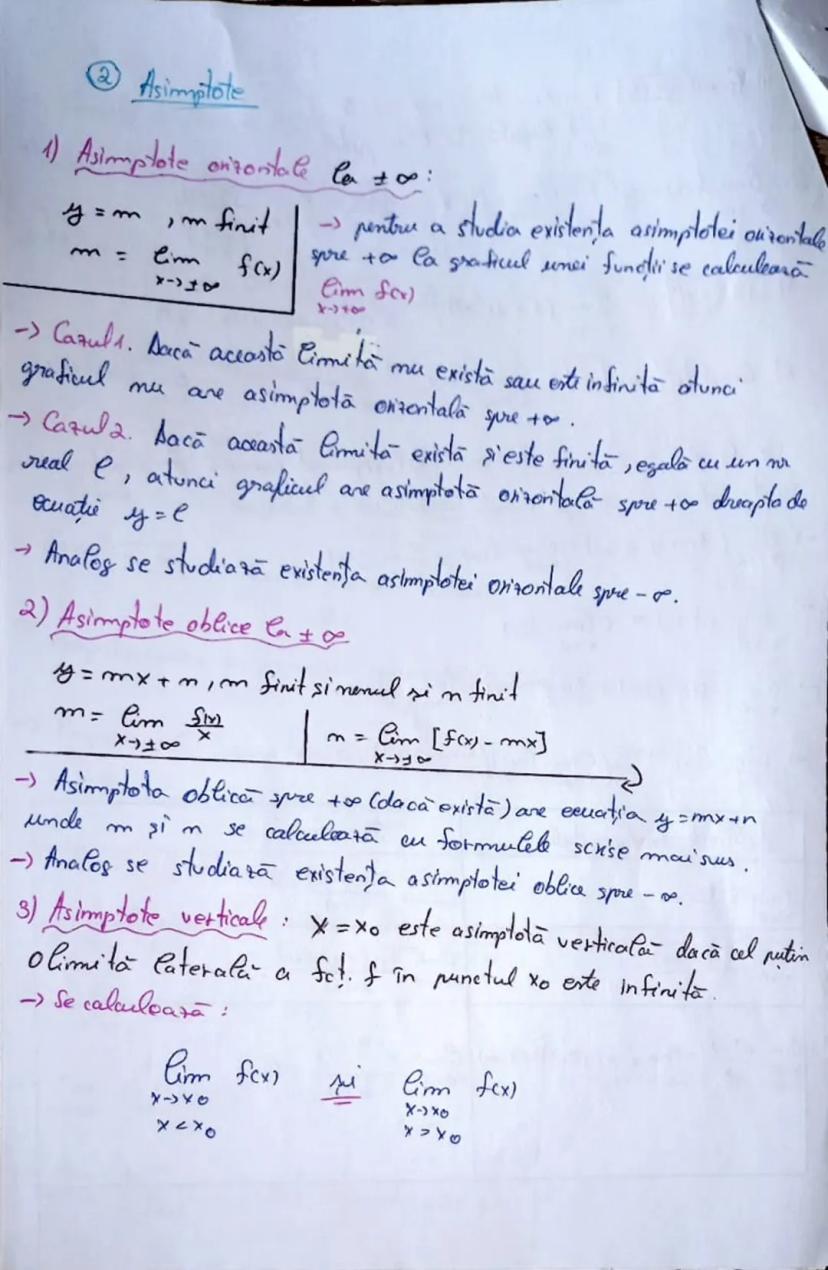 ② Asimptote
1) Asimptote orizontale la ±∞:
y = m , m finit
m = lim f(x)
x→±∞
→ pentru a studia existența asimptotei orizontale
spre +∞ la graficul unei funcții se calculează
lim f(x)
x→+∞
→ Cazul 1. Dacă această limită nu există sau este infinită atunci
graficul nu are asimptotă orizontală spre +∞.
→ Cazul 2. Dacă această limită există și este finită, egală cu un nr
real l, atunci graficul are asimptotă orizontală spre +∞ dreapta de
ecuație y = l
→ Analog se studiază existența asimptotei orizontale spre -∞.
2) Asimptote oblice la ±∞
y = mx + n , m finit și nenul și n finit
m = lim f(x)/x | n = lim [f(x) - mx]
x→±∞ x→±∞
→ Asimptota oblică spre +∞ (dacă există) are ecuația y = mx+n
unde m și n se calculează cu formulele scrise mai sus.
→ Analog se studiază existența asimptotei oblice spre -∞.
3) Asimptote verticale : x = x₀ este asimptotă verticală dacă cel puțin
o limită laterală a fcț. f în punctul x₀ este infinită.
→ Se calculează :
lim f(x) și lim f(x)
x→x₀ x→x₀
x < x₀ x > x₀